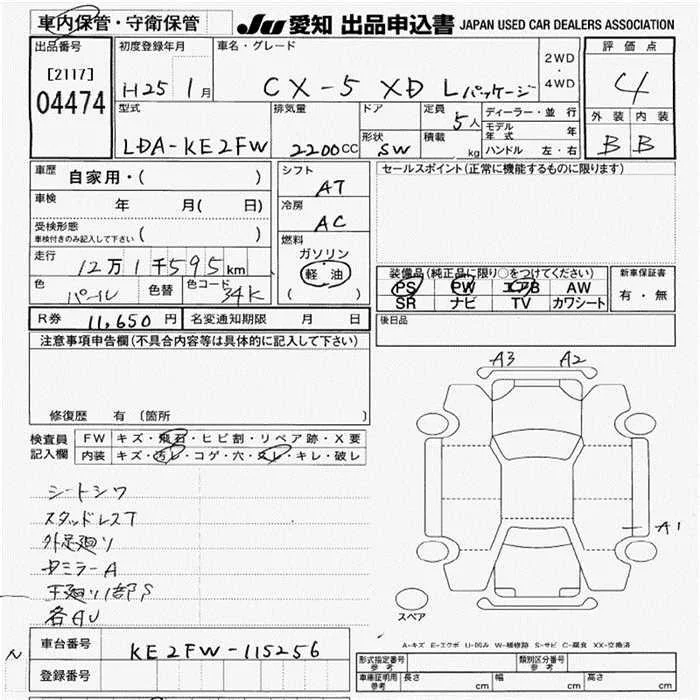 車内保管・守衛保管
JU 愛知 出品申込書 JAPAN USED CAR DEALERS ASSOCIATION
出品番号
[2117]
04474
初度登録年月
H25 1月
車名・グレード
CX-5 XD Lパッケージ
2WD・4WD
評価点
4
外装 内装
B B
型式
LDA-KE2FW
排気量
2200CC
ドア
形状
SW
定員
5人
積載
kg
ディーラー・並行
モデル年式 年
ハンドル 左・右
車歴 自家用・( )
車検 年 月( 日)
受検形態
車検付きのみ記入して下さい ( )
走行
12万1千595km
色 パール 色替 色コード 34K
シフト
AT
冷房
AC
燃料
ガソリン
軽油
( )
セールスポイント(正常に機能するものに限ります)
装備品(純正品に限り○をつけてください)
PS PW エアB AW
SR ナビ TV カワシート
新車保証書
有・無
R券 11,650円 名変通知期限 月 日
後日品
注意事項申告欄(不具合内容等は具体的に記入して下さい)
修復歴 有 〔箇所
検査員記入欄
FW キズ・飛石・ヒビ割・リペア跡・X要
内装 キズ・汚レ・コゲ・穴・スレ・キレ・破レ
シートシワ
スタッドレスT
外足廻サ
ドミラーA
下廻リ1部S
各AU
A3 A2
A1
スペア
A-キズ E-エクボ U-凹み W-補修跡 S-サビ C-腐食 XX-交換済
車台番号 KE2FW-115256
登録番号
形式指定番号 参考
類別区分番号 参考
車庫証明用 参考 長さ cm 幅 cm 高さ cm